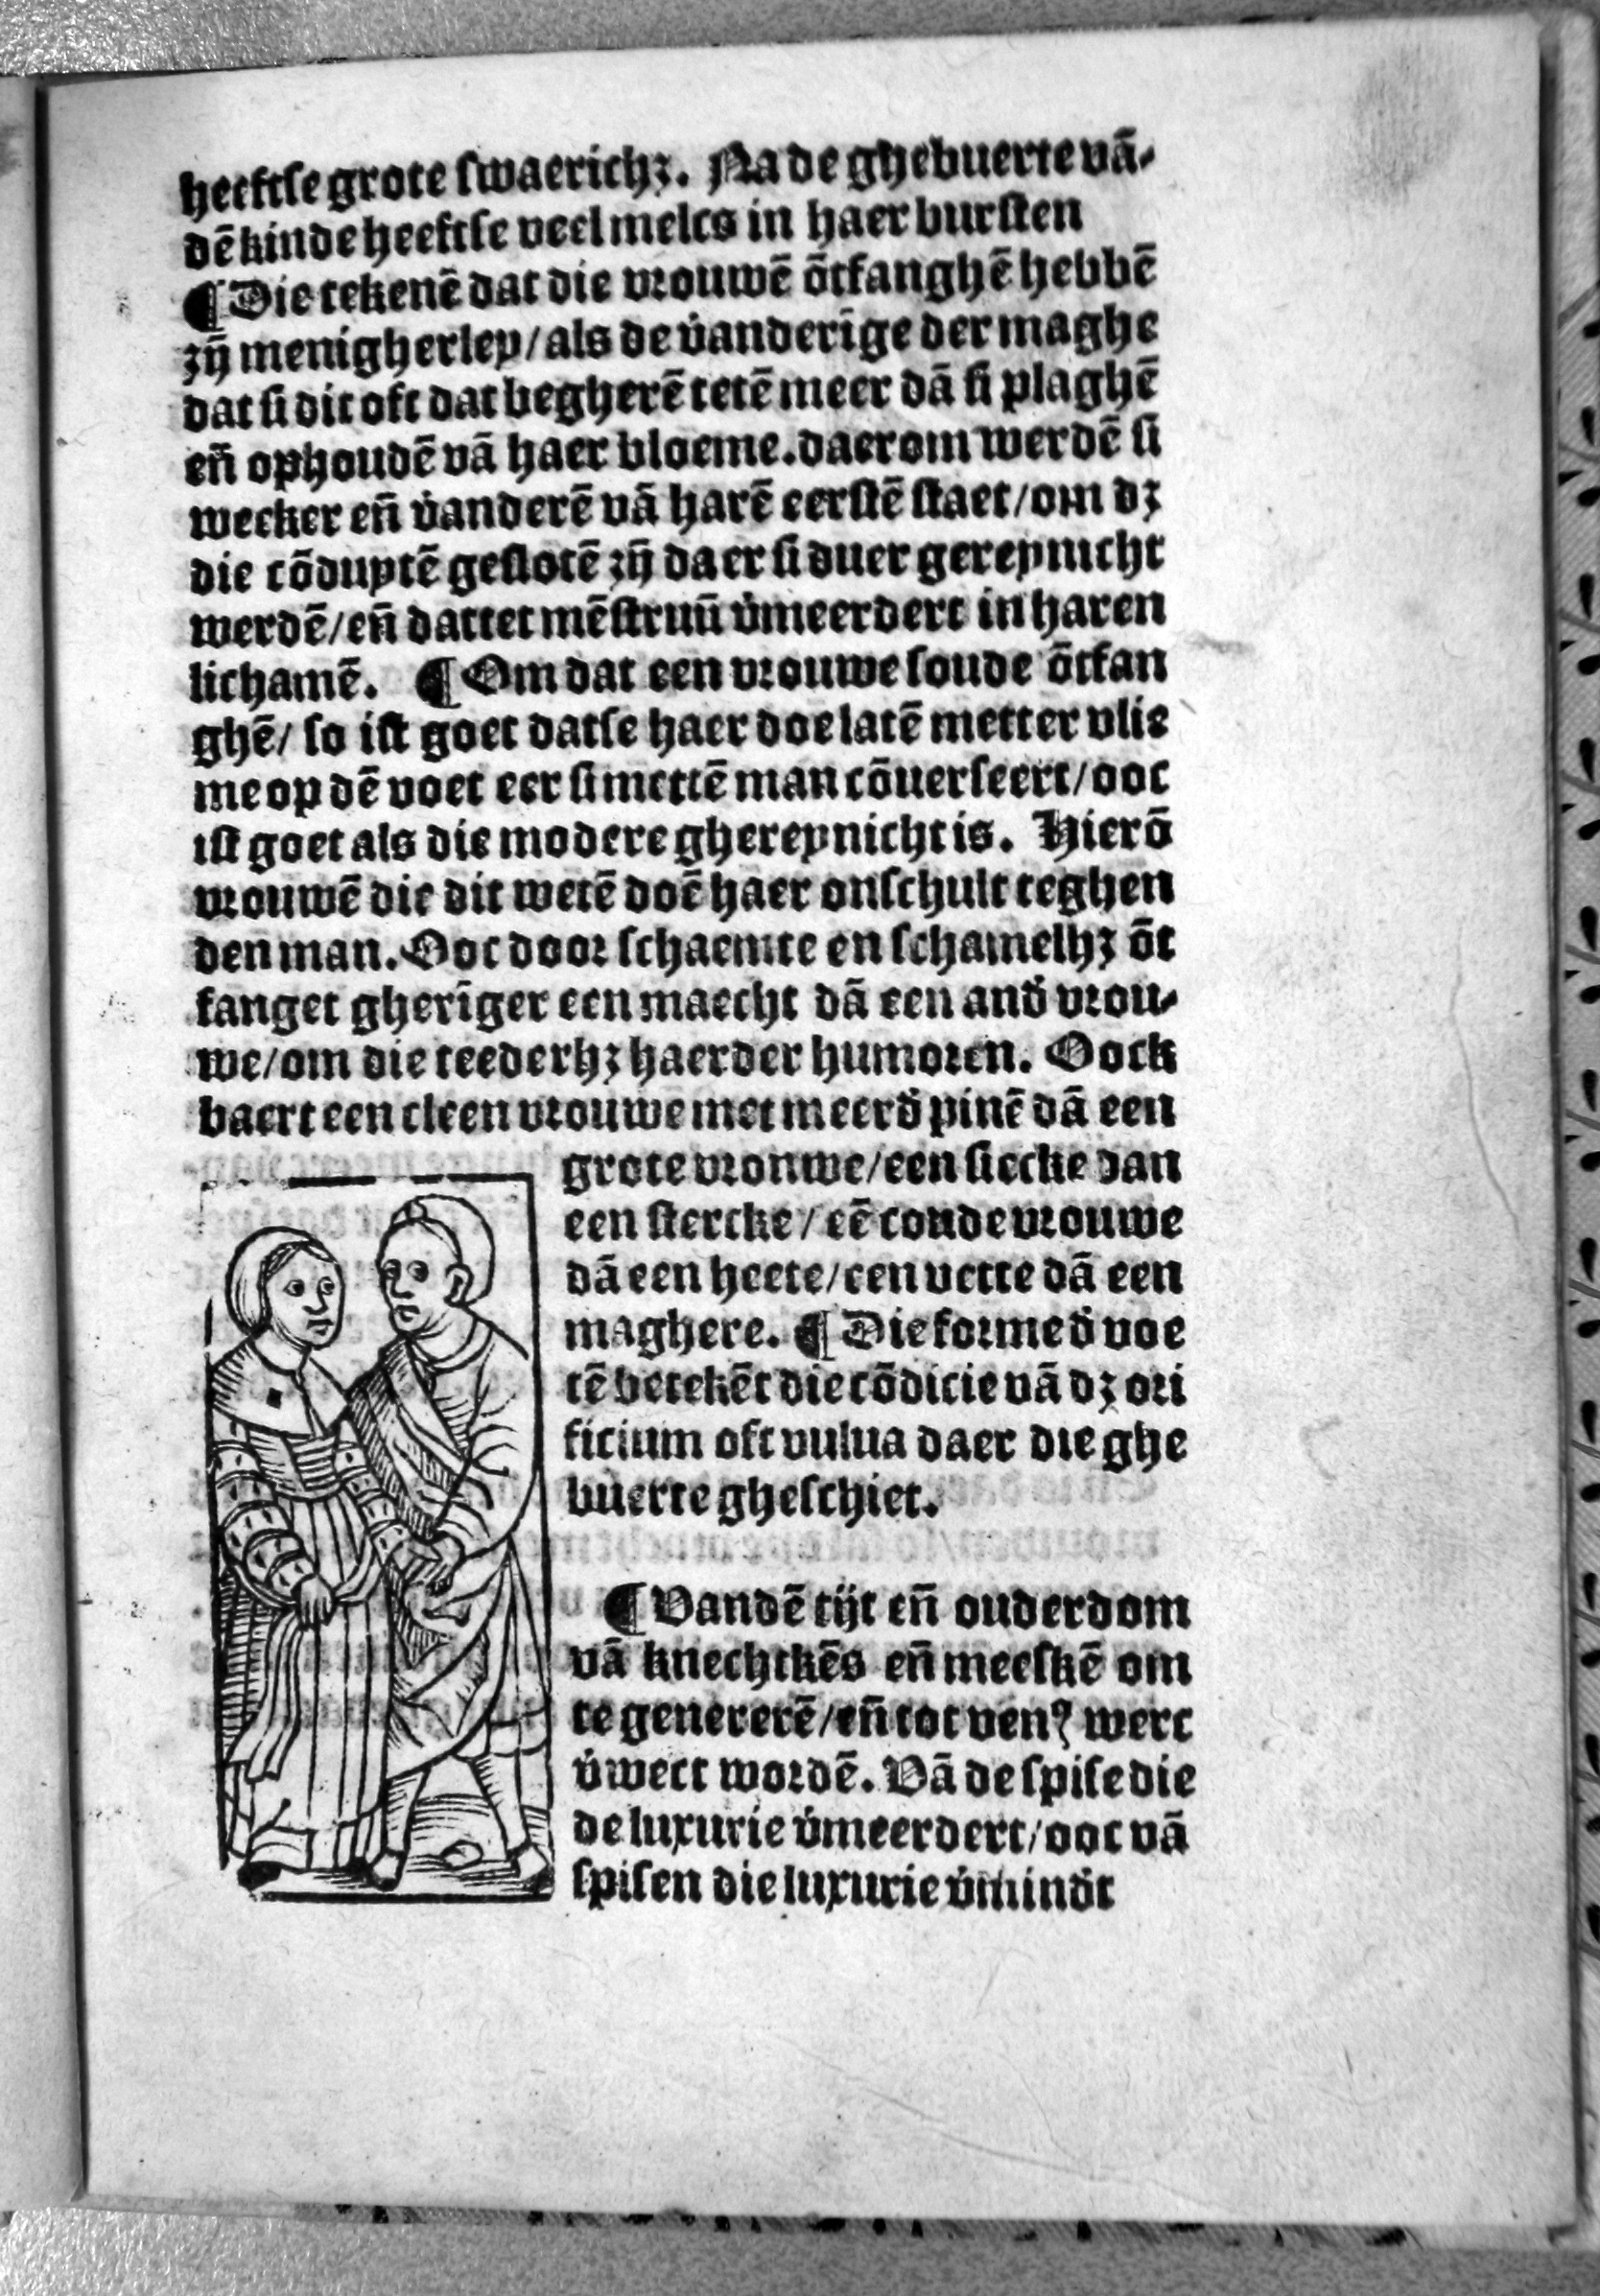 heeftse grote swaerichꝫ. Na de ghebuerte vā-
dē kinde heeftse veel melcs in haer bursten
¶ Die tekenē dat die vrouwē ōtfanghē hebbē
zȳ menigherley/als de v̇anderīge der maghe
dat si dit oft dat begherē tetē meer dā si plaghē
eñ ophoudē vā haer bloeme.daerom werdē si
wecker eñ v̇anderē vā harē eerstē staet/om dꝫ
die cōduytē geslotē zȳ daer si duer gereynicht
werdē/eñ dattet mēstruū v̇meerdert in haren
lichamē. ¶ Om dat een vrouwe soude ōtfan
ghē/ so ist goet datse haer doe latē metter vlie
me op dē voet eer si mettē man cōuerseert/ooc
ist goet als die modere ghereynicht is. Hierō
vrouwē die dit wetē doē haer onschult teghen
den man. Ooc door schaemte en schamelhꝫ ōt
fanget gherīger een maecht dā een and̓ vrou-
we/om die teederhꝫ haerder humoren. Oock
baert een cleen vrouwe met meerd̓ pinē dā een
grote vronwe/een siecke dan
een stercke/eē coude vrouwe
dā een heete/een vette dā een
maghere. ¶ Die forme d̓ voe
tē betekēt die cōdicie vā dꝫ ori
ficium oft vulua daer die ghe
buerte gheschiet.
¶ Vandē tijt eñ ouderdom
vā knechtkēs eñ meeskē om
te genererē/eñ tot venꝰ werc
v̇wect wordē. Vā de spise die
de luxurie v̇meerdert/ooc vā
spisen die luxurie v̇mind̓t